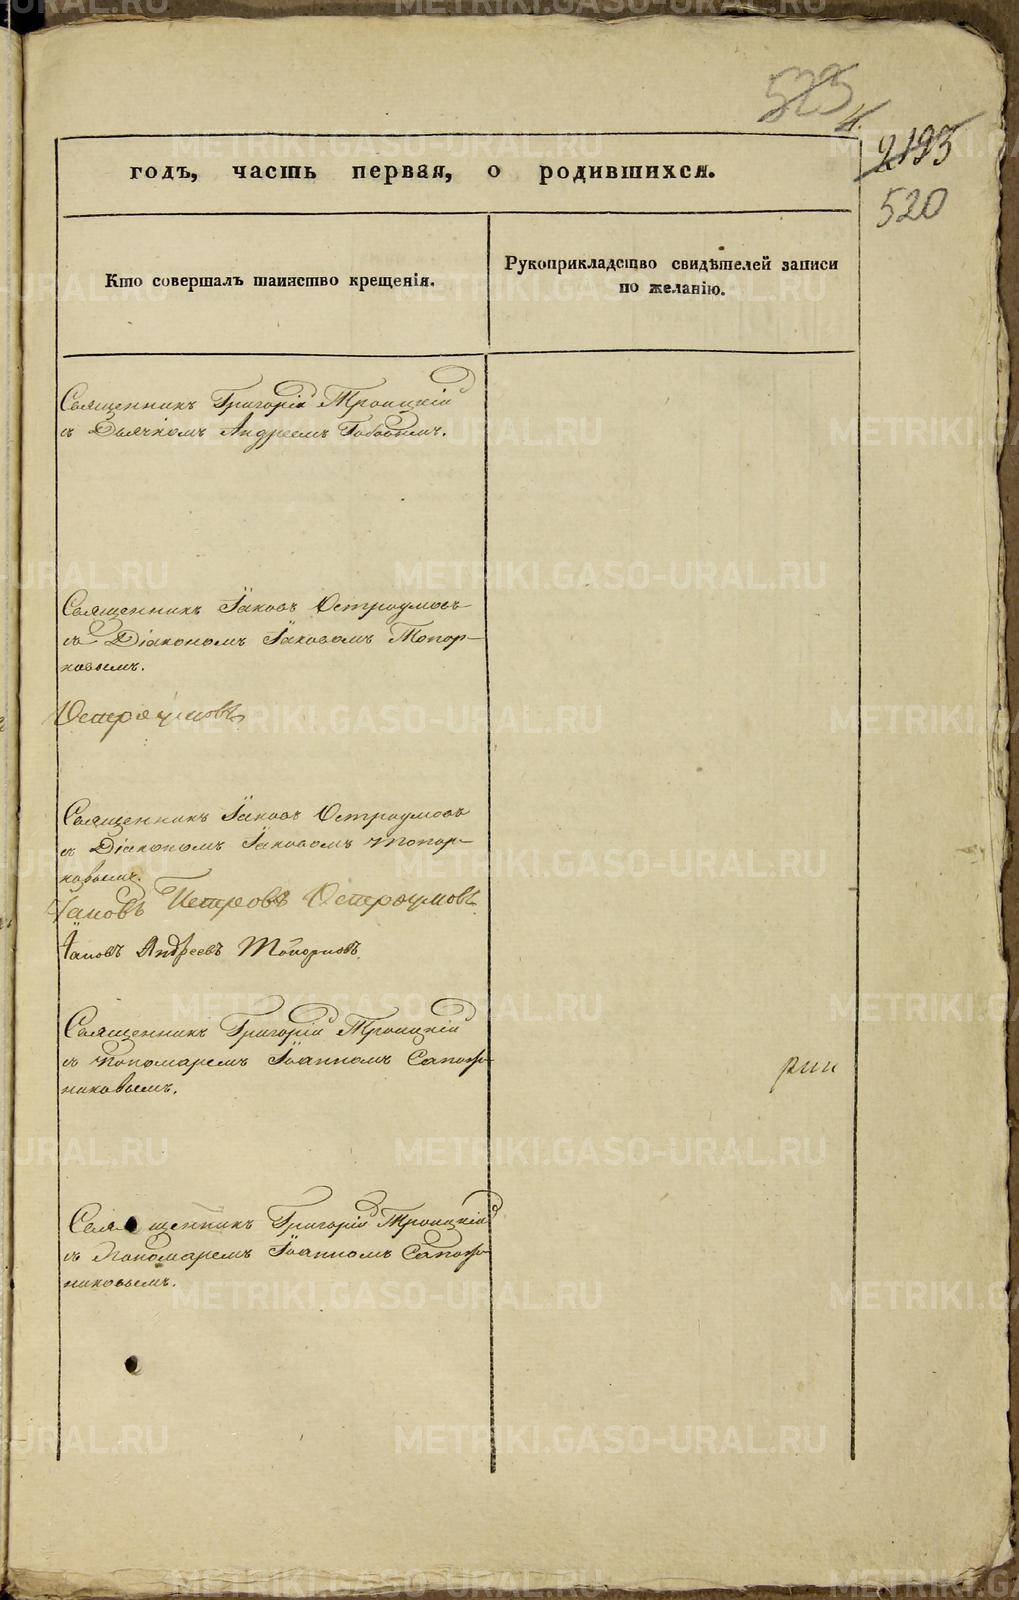 525
2193
520
годъ, часть первая, о родившихся.
Кто совершалъ таинство крещенія.
Рукоприкладство свидѣтелей записи
по желанію.
Священникъ Григорій Троицкій
съ Дьячкомъ Андреемъ
Священникъ Іаковъ Остроумовъ
съ Діакономъ Іаковомъ Топор-
ковымъ.
Остроумовъ
Священникъ Іаковъ Остроумовъ
съ Діакономъ Іаковомъ Топор-
ковымъ.
Іаковъ Петровъ Остроумовъ
Іаковъ Андреевъ Топорковъ.
Священникъ Григорій Троицкій
съ Пономаремъ Іоанномъ Сапож-
никовымъ.
Священникъ Григорій Троицкій
съ Пономаремъ Іоанномъ Сапож-
никовымъ.
METRIKI.GASO-URAL.RU